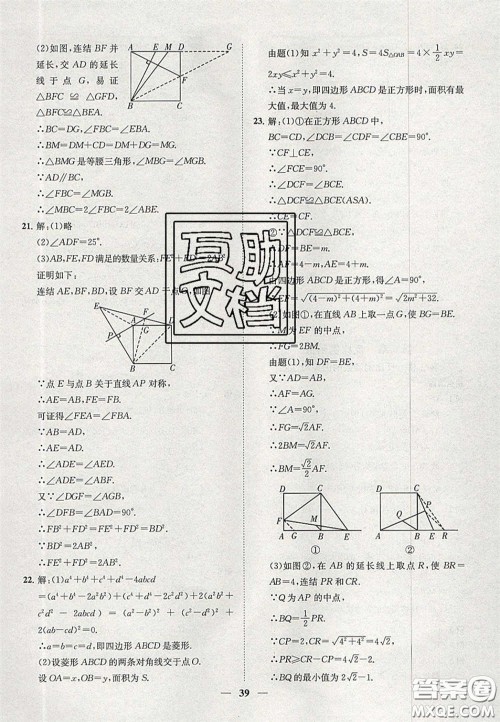 (2)如图,连结 BF 并
延长,交 AD 的延长
线于点 G,易证
△BFC ≌ △GFD,
△BFC≌△BCE.
∴BC=DG,∠FBC=∠EBA.
∴BM=DM+CD=DM+DG=MG.
∴△BMG 是等腰三角形,∠MBF=∠G.
∵AD∥BC,
∴∠FBC=∠G=∠MBF.
∴∠MBC=2∠FBC=2∠ABE.
21. 解:(1)略
(2)∠ADF=25°.
(3)AB,FE,FD满足的数量关系:FE²+FD²=2AB².
证明如下:
连结 AE,BF,BD,设 BF 交 AD 于点G,如图
A
E
F
D
P
G
B
C
∵点 E 与点 B 关于直线 AP 对称,
∴AE=AB,FE=FB.
可证得∠FEA=∠FBA.
∵AB=AD,
∴AE=AD.
∴∠ADE=∠AED.
∴∠ADE=∠ABF.
又∵∠DGF=∠AGB,
∴∠DFB=∠BAD=90°.
∴FB²+FD²=BD².
∵BD²=2AB²,
∴FE²+FD²=2AB².
22. 解:(1)a⁴+b⁴+c⁴+d⁴-4abcd
=(a⁴-2a²b²+b⁴)+(c⁴-2c²d²+d⁴)+(2a²b²+
2c²d²-4abcd)=(a²-b²)²+(c²-d²)²+
2(ab-cd)²=0.
∴a=b=c=d,即四边形 ABCD 是菱形.
(2)设菱形 ABCD 的两条对角线交于点 O.
设 OA=x,OB=y,面积为 S.
由题(1)知 x²+y²=4,S=4S△OAB=4×1/2 xy=
2xy≤x²+y²=4.
∴当 x=y,即四边形 ABCD 是正方形时,面积有
最大值,最大值为 4.
23. 解:(1)①在正方形 ABCD 中,
BC=CD,∠BCD=∠CBE=90°.
∵CF⊥CE,
∴∠FCE=90°.
∴∠DCF=∠BCE.
又∵∠CDF=∠CBE=90°,
∴△DCF≌△BCE.
∴CF=CE.
由四边形 ABCD 是正方形,得∠A=90°,
∴EF=√((4-m)²+(4+m)²)=√(2m²+32).
(2)如图①,在直线 AB 上取一点 G,使 BG=BE.
∵M 为 EF 的中点,
∴FG=2BM.
由题(1)知 DF=BE,
又∵AD=AB,
∴AF=AG.
∵∠A=90°,
∴FG=√2AF.
∴2BM=√2AF.
∴BM=√2/2 AF.
D
C
F
M
A
G
B
E
①
D
C
P
Q
A
B
E
R
②
(3)如图②,在 AB 的延长线上取点 R,使 BR=
AB=4,连结 PR 和 CR.
∵Q 为 AP 的中点,
∴BQ=1/2 PR.
∵CP=2,CR=√(4²+4²)=4√2,
∴PR≥CR-CP=4√2-2.
互助
文档
39
答案圈
MXQE.COM